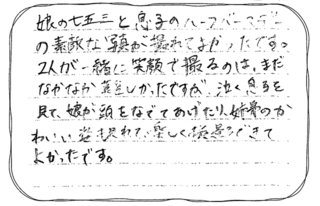 娘の七五三と息子のハーフバースデー
の素敵な写真が撮れてよかったです。
2人が一緒に笑顔で撮るのは、まだ
なかなか難しかったですが、泣く息子を
見て、娘が頭をなでてあげたり、姉弟のか
わいい姿も見れた。楽しく撮影できて
よかったです。